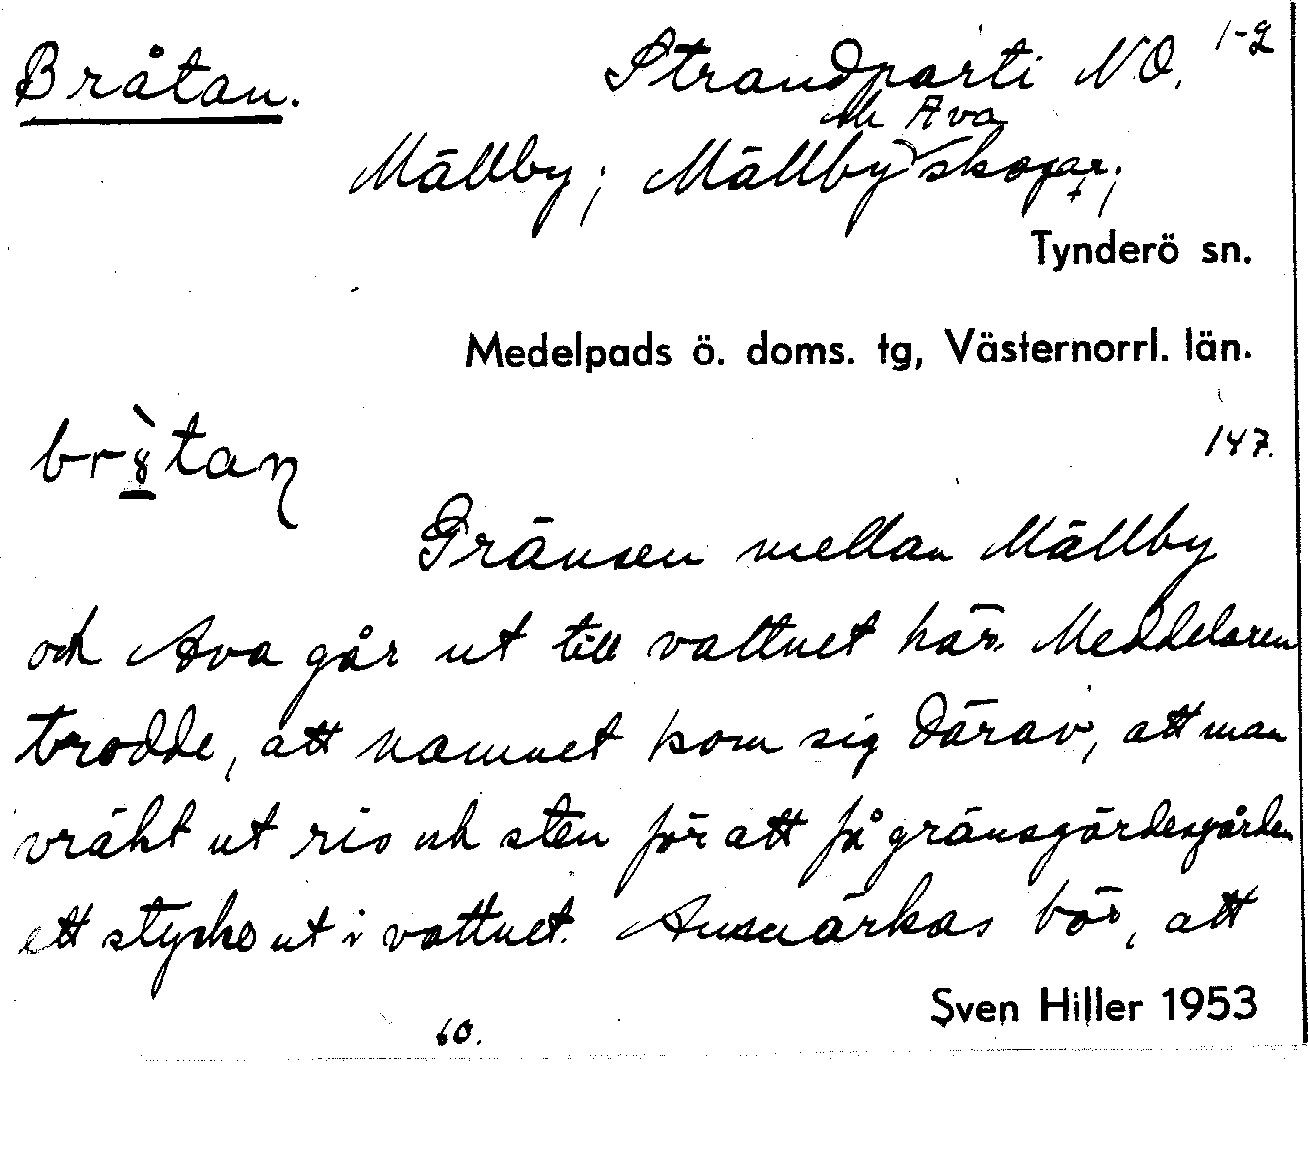 Bråtan. Strandparti NO. 1-2
och Ava
Mällby; Mällby skogar;
Tynderö sn.
Medelpads ö. doms. tg, Västernorrl. län.
147.
Gränsen mellan Mällby
och Ava går ut till vattnet här. Meddelaren
trodde, att namnet kom sig därav, att man
vräkt ut ris och sten för att få gränsgärdesgården
ett stycke ut i vattnet. Anmärkas bör, att
Sven Hiller 1953
60.